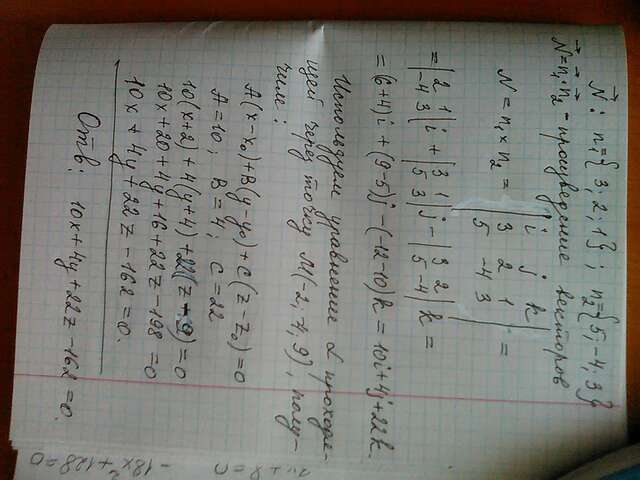 N: n₁={3; 2; 1}; n₂={5; -4; 3}
N=n₁·n₂ - произведение векторов
N = n₁ × n₂ = | i j k |
| 3 2 1 | =
| 5 -4 3 |
= | 2 1 | i + | 3 1 | j - | 3 2 | k =
| -4 3 | | 5 3 | | 5 -4 |
= (6+4)i + (9-5)j - (-12-10)k = 10i+4j+22k.
Используем уравнение α проходя-
щей через точку М(-2; -4; 9), полу-
чим:
A(x-x₀)+B(y-y₀)+C(z-z₀)=0
A=10; B=4; C=22
10(x+2)+4(y+4)+22(z-9)=0
10x+20+4y+16+22z-198=0
10x+4y+22z-162=0.
Отв: 10x+4y+22z-162=0.
-18x²+128=0